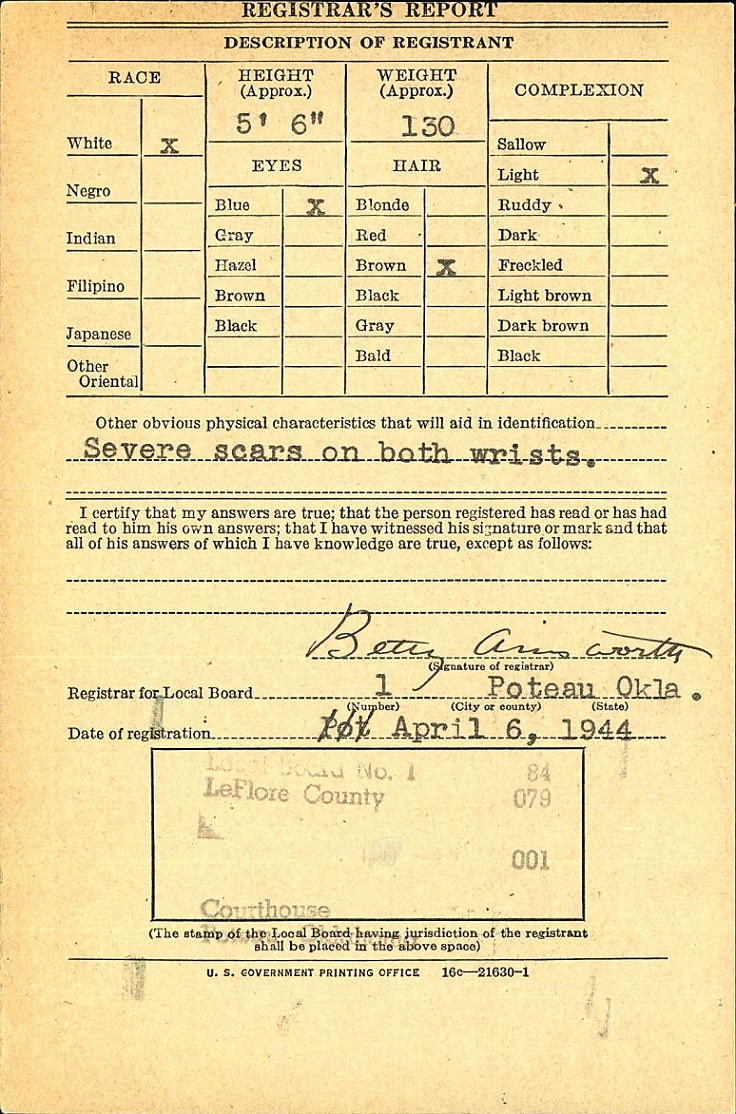 REGISTRAR'S REPORT
DESCRIPTION OF REGISTRANT
RACE
HEIGHT
(Approx.)
WEIGHT
(Approx.)
COMPLEXION
5' 6"
130
White X
Negro
Indian
Filipino
Japanese
Other
Oriental
EYES
Blue X
Gray
Hazel
Brown
Black
HAIR
Blonde
Red
Brown X
Black
Gray
Bald
Sallow
Light X
Ruddy
Dark
Freckled
Light brown
Dark brown
Black
Other obvious physical characteristics that will aid in identification
Severe scars on both wrists.
I certify that my answers are true; that the person registered has read or has had
read to him his own answers; that I have witnessed his signature or mark and that
all of his answers of which I have knowledge are true, except as follows:
Betty Ainsworth
(Signature of registrar)
Registrar for Local Board 1 Poteau Okla.
(Number) (City or county) (State)
Date of registration April 6, 1944
Local Board No. 1 84
LeFlore County 079
001
Courthouse
(The stamp of the Local Board having jurisdiction of the registrant
shall be placed in the above space)
U. S. GOVERNMENT PRINTING OFFICE 16c—21630-1